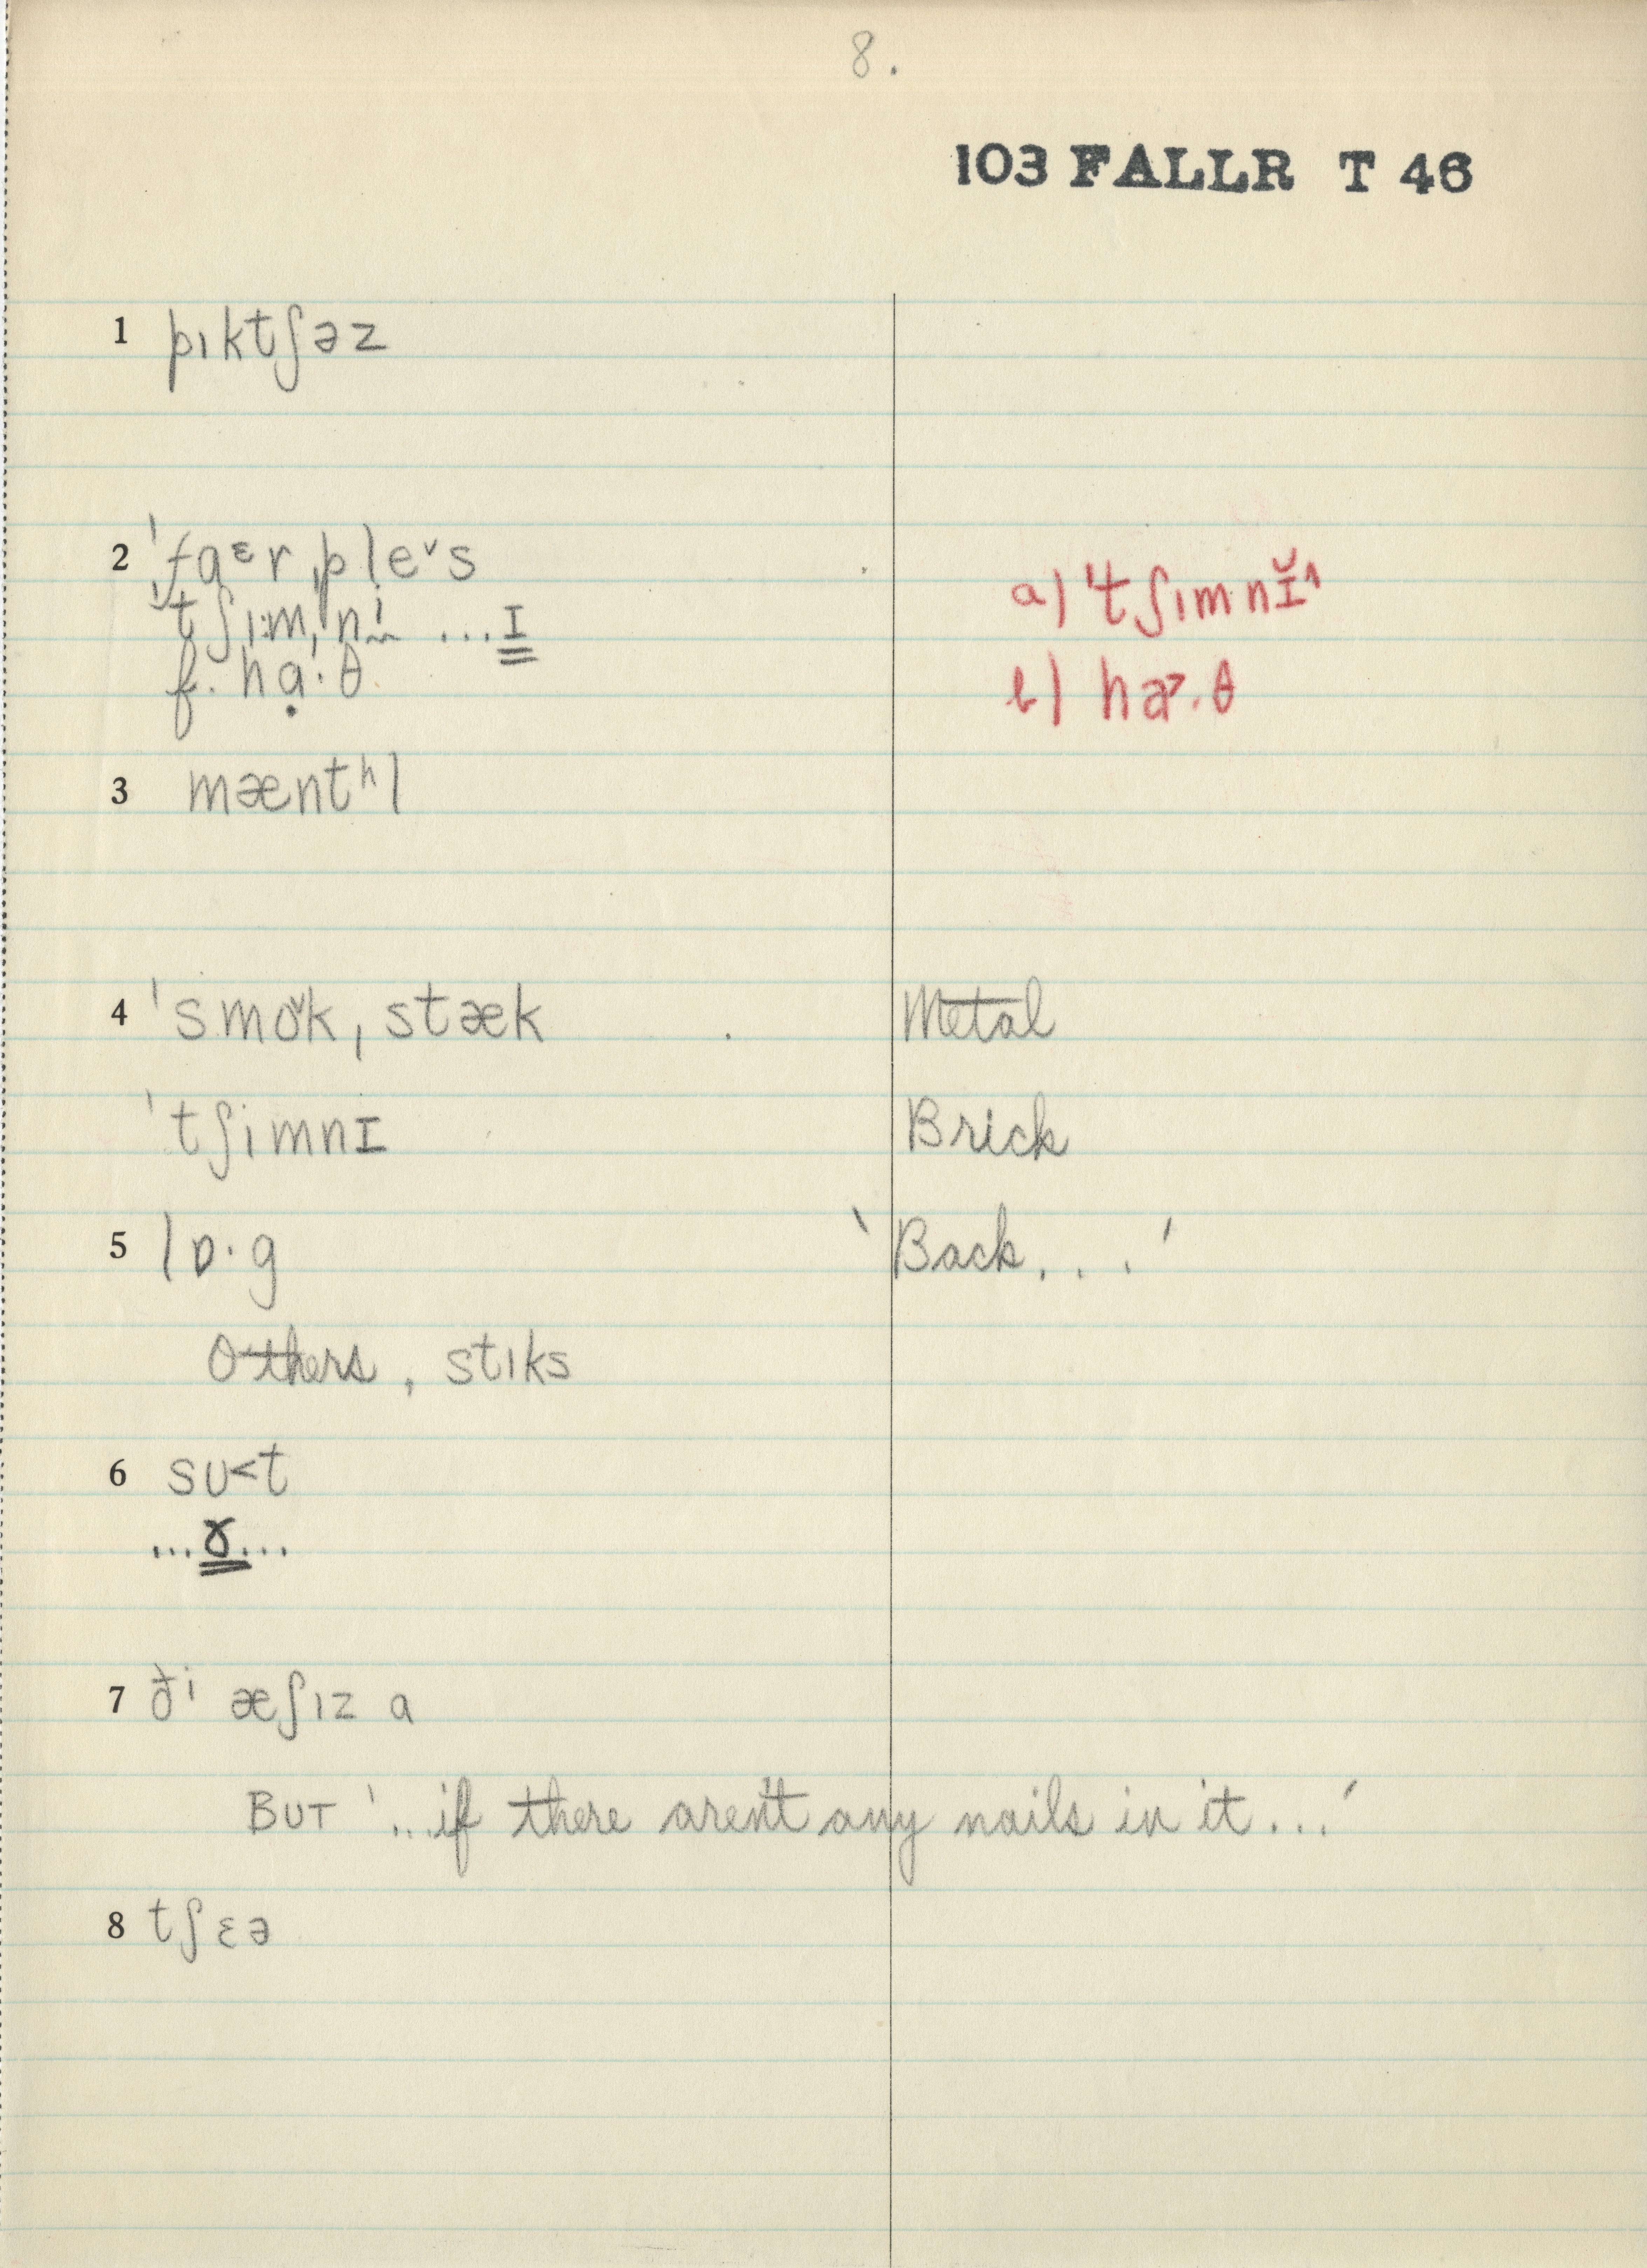 8.
103 FALLR T 46
1 pıktʃəz
2 ˈfaᵋr ˌpleᵛs
ˈtʃı·mˌnɨ ...I
a) ˈtʃımnĬ^
f. hạ·θ
b) ha>·θ
3 mæntʰl
4 ˈsmoᵛkˌstæk Metal
ˈtʃimnI Brick
5 lɒ·g 'Back...'
Others, stıks
6 sʊ<t
...ɤ...
7 ðⁱ æʃız a
BUT '...if there aren't any nails in it...'
8 tʃɛə